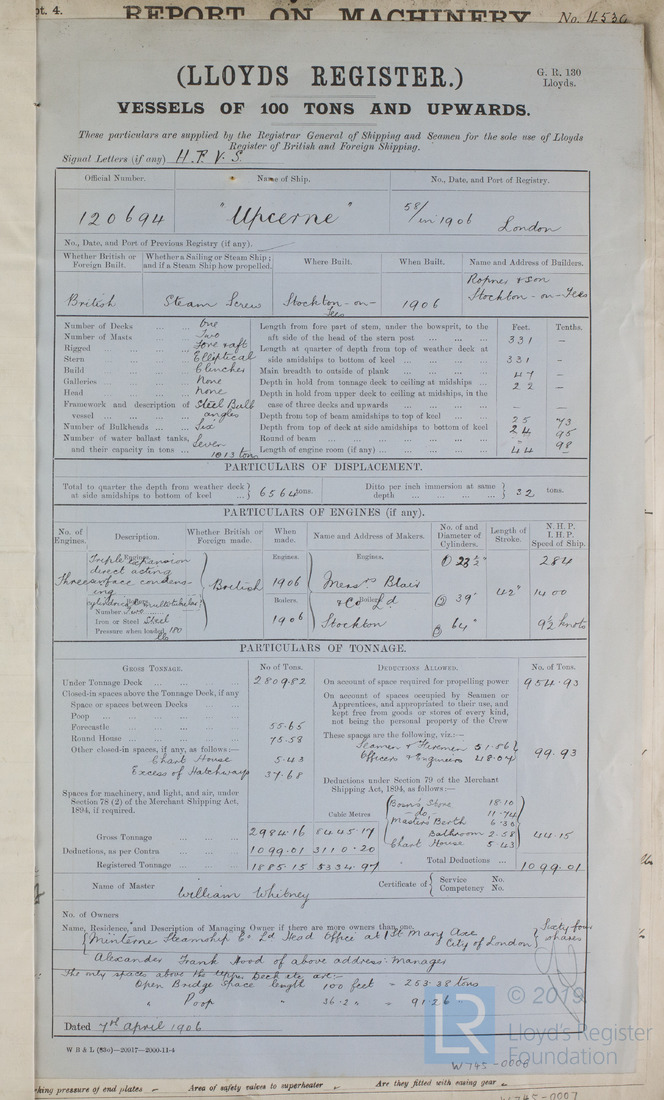 pt. 4. REPORT ON MACHINERY No. 4530
(LLOYDS REGISTER.)
G. R. 130
Lloyds.
VESSELS OF 100 TONS AND UPWARDS.
These particulars are supplied by the Registrar General of Shipping and Seamen for the sole use of Lloyds
Register of British and Foreign Shipping.
Signal Letters (if any) H. F. V. S.
Official Number. Name of Ship. No., Date, and Port of Registry.
120694 "Upcerne" 58/in 1906 London
No., Date, and Port of Previous Registry (if any).
Whether British or Foreign Built. Whether a Sailing or Steam Ship; and if a Steam Ship how propelled. Where Built. When Built. Name and Address of Builders.
British Steam Screw Stockton-on-Tees 1906 Ropner & Son Stockton-on-Tees
Number of Decks One
Number of Masts Two
Rigged Fore & aft
Stern Elliptical
Build Clincher
Galleries None
Head None
Framework and description of vessel Steel Bulb angles
Number of Bulkheads Six
Number of water ballast tanks, and their capacity in tons Seven 1013 tons
Feet. Tenths.
Length from fore part of stem, under the bowsprit, to the aft side of the head of the stern post 331 –
Length at quarter of depth from top of weather deck at side amidships to bottom of keel 331 –
Main breadth to outside of plank 47 –
Depth in hold from tonnage deck to ceiling at midships 22 –
Depth in hold from upper deck to ceiling at midships, in the case of three decks and upwards – –
Depth from top of beam amidships to top of keel 25 73
Depth from top of deck at side amidships to bottom of keel 24 95
Round of beam " 98
Length of engine room (if any) 44 –
PARTICULARS OF DISPLACEMENT.
Total to quarter the depth from weather deck at side amidships to bottom of keel 6564 tons. Ditto per inch immersion at same depth 32 tons.
PARTICULARS OF ENGINES (if any).
No. of Engines. Description. Whether British or Foreign made. When made. Name and Address of Makers. No. of and Diameter of Cylinders. Length of Stroke. N. H. P. I. H. P. Speed of Ship.
Engines. Engines. Engines.
Three Triple Expansion direct acting surface condensing British 1906 Messrs Blair & Co Ld Stockton
① 23½" ① 39" ① 64" 42" 284 1400 9½ knots
Boilers. Boilers. Boilers.
Cylindrical Multitubular
Number Two
Iron or Steel Steel
Pressure when loaded 180 lbs
1906
PARTICULARS OF TONNAGE.
GROSS TONNAGE. No of Tons. DEDUCTIONS ALLOWED. No. of Tons.
Under Tonnage Deck 2809.82
Closed-in spaces above the Tonnage Deck, if any
Space or spaces between Decks
Poop
Forecastle 55.65
Round House 75.58
Other closed-in spaces, if any, as follows:—
Chart House 5.43
Excess of Hatchways 37.68
Spaces for machinery, and light, and air, under
Section 78 (2) of the Merchant Shipping Act,
1894, if required.
Cubic Metres
Gross Tonnage 2984.16 8445.17
Deductions, as per Contra 1099.01 3110.20
Registered Tonnage 1885.15 5334.97
On account of space required for propelling power 954.93
On account of spaces occupied by Seamen or
Apprentices, and appropriated to their use, and
kept free from goods or stores of every kind,
not being the personal property of the Crew
These spaces are the following, viz.:—
Seamen & Firemen 51.86
Officers & Engineers 48.07 99.93
Deductions under Section 79 of the Merchant
Shipping Act, 1894, as follows:—
Bosn's Store 18.10
- do - 11.74
Master's Berth 6.30
Bathroom 2.58
Chart House 5.43 44.15
Total Deductions 1099.01
Name of Master William Whitney Certificate of Service No. Competency No.
No. of Owners
Name, Residence, and Description of Managing Owner if there are more owners than one.
Minterne Steamship Co Ld Head Office at 1 St Mary Axe City of London Sixty four shares
Alexander Frank Hood of above address: Manager
The only spaces above the Upper Deck etc are:-
Open Bridge Space length 100 feet = 253.38 tons
" Poop " 36.2 " = 91.26 "
Dated 7th April 1906
W B & L (83o)—20917—2000-11-4
© 2019
LR Lloyd's Register
Foundation
W745-0006
king pressure of end plates Area of safety valves to superheater Are they fitted with easing gear
W745-0007